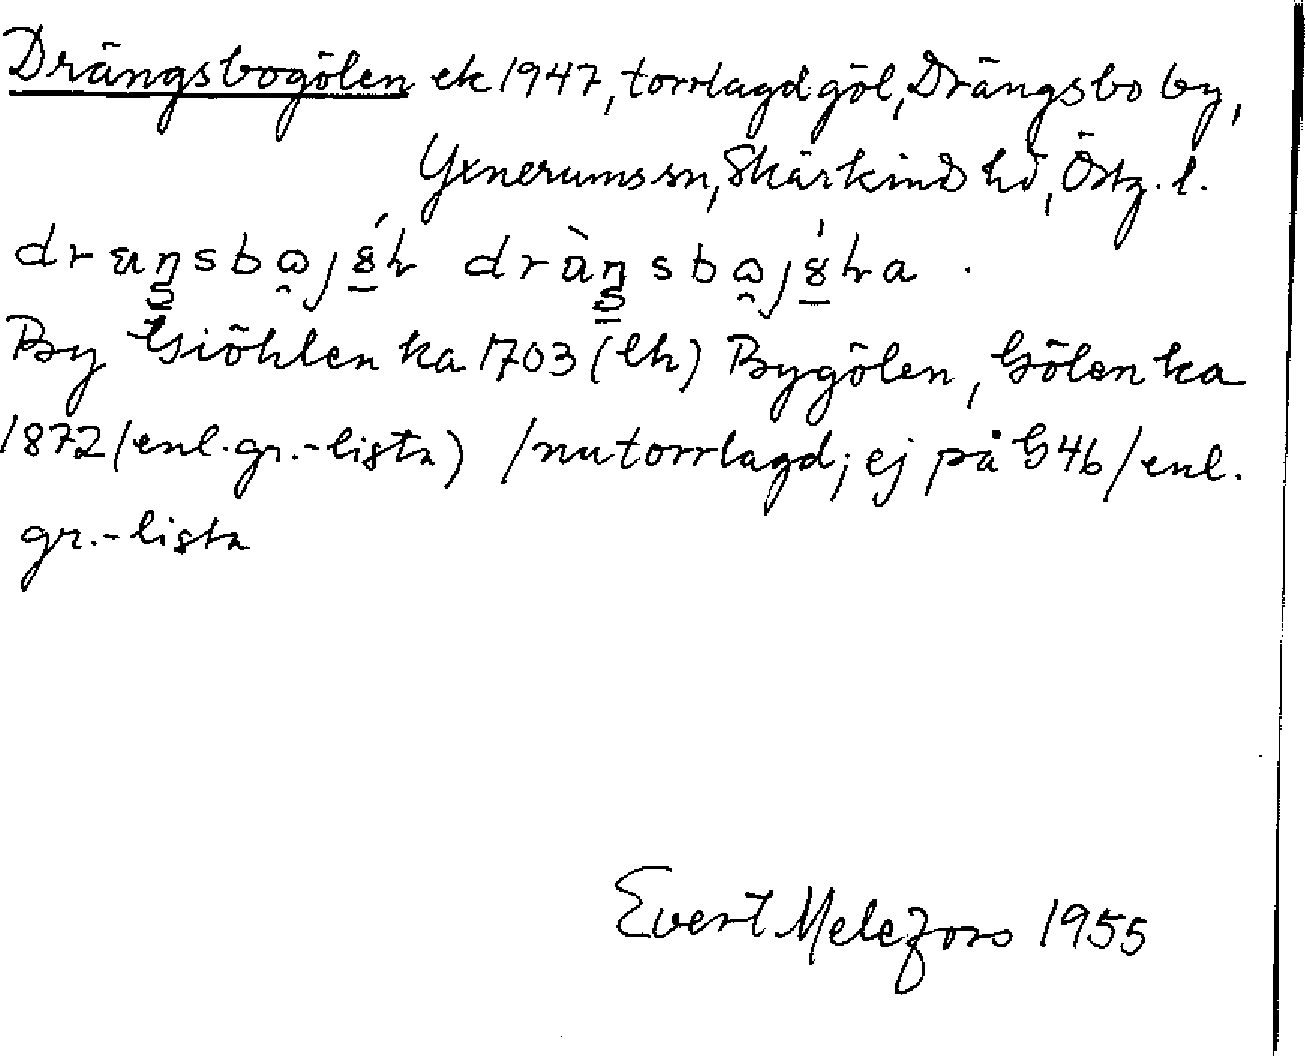 Drängsbogölen ek 1947, torrlagd göl, Drängsbo by,
Yxnerums sn, Skärkind hd, Östg. l.
By Giöhlen ka 1703 (lh) Bygölen, Gölen ka
1872 (enl. gr.-lista) / nu torrlagd; ej på G46 / enl.
gr.-lista
Evert Melefors 1955